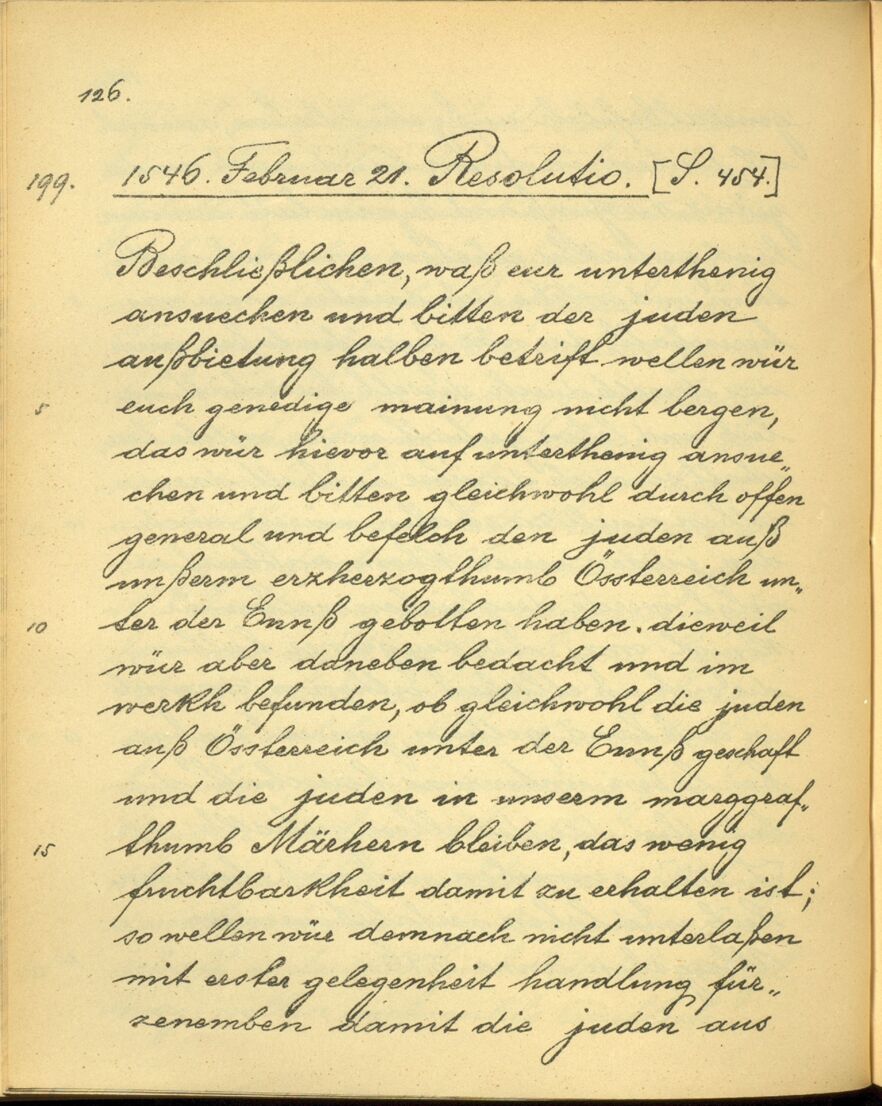 126.
199. 1546. Februar 21. Resolutio. [S. 454.]
Beschließlichen, waß eur unterthenig
ansuechen und bitten der juden
außbietung halben betrift wellen wür
5 euch genedige mainung nicht bergen,
das wür hievor auf unterthenig ansue„
chen und bitten gleichwohl durch offen
general und befelch den juden auß
unßerm erzherzogthumb Össterreich un„
10 ter der Ennß gebotten haben. dieweil
wür aber daneben bedacht und im
werkh befunden, ob gleichwohl die juden
auß Össterreich unter der Ennß geschaft
und die juden in unserm marggraf„
15 thumb Märhern bleiben, das wenig
fruchtbarkheit damit zu erhalten ist;
so wellen wür demnach nicht unterlaßen
mit erster gelegenheit handlung für„
zenemben damit die juden aus